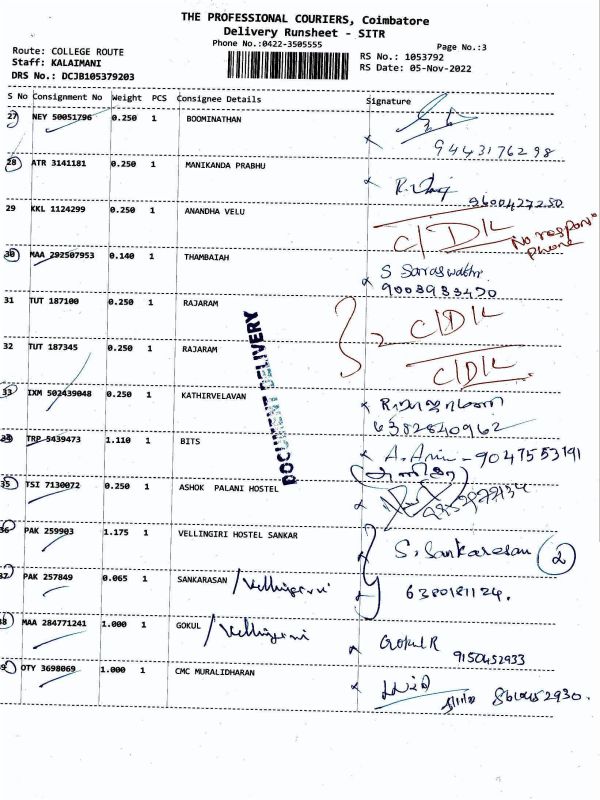 THE PROFESSIONAL COURIERS, Coimbatore
Delivery Runsheet - SITR
Phone No.:0422-3505555
Page No.:3
Route: COLLEGE ROUTE
Staff: KALAIMANI
DRS No.: DCJB105379203
RS No.: 1053792
RS Date: 05-Nov-2022
S No Consignment No Weight PCS Consignee Details Signature
27 NEY 50051796 0.250 1 BOOMINATHAN
9443176298
28 ATR 3141181 0.250 1 MANIKANDA PRABHU
9600427250
29 KKL 1124299 0.250 1 ANANDHA VELU
C/D/L No respons phone
30 MAA 292507953 0.140 1 THAMBAIAH
S Saraswathi
9003933470
31 TUT 187100 0.250 1 RAJARAM
2 C/D/L
32 TUT 187345 0.250 1 RAJARAM
C/D/L
DOCUMENT DELIVERY
33 IXM 502439048 0.250 1 KATHIRVELAVAN
6382840962
34 TRP 5439473 1.110 1 BITS
A. - 9047553191
35 TSI 7130072 0.250 1 ASHOK PALANI HOSTEL
36 PAK 259903 1.175 1 VELLINGIRI HOSTEL SANKAR
S. Sankarasan 2
37 PAK 257849 0.065 1 SANKARASAN / Vellingiri
6380181124.
38 MAA 284771241 1.000 1 GOKUL / Vellingiri
Gokul R
9150452933
39 OTY 3698069 1.000 1 CMC MURALIDHARAN
8610452930.